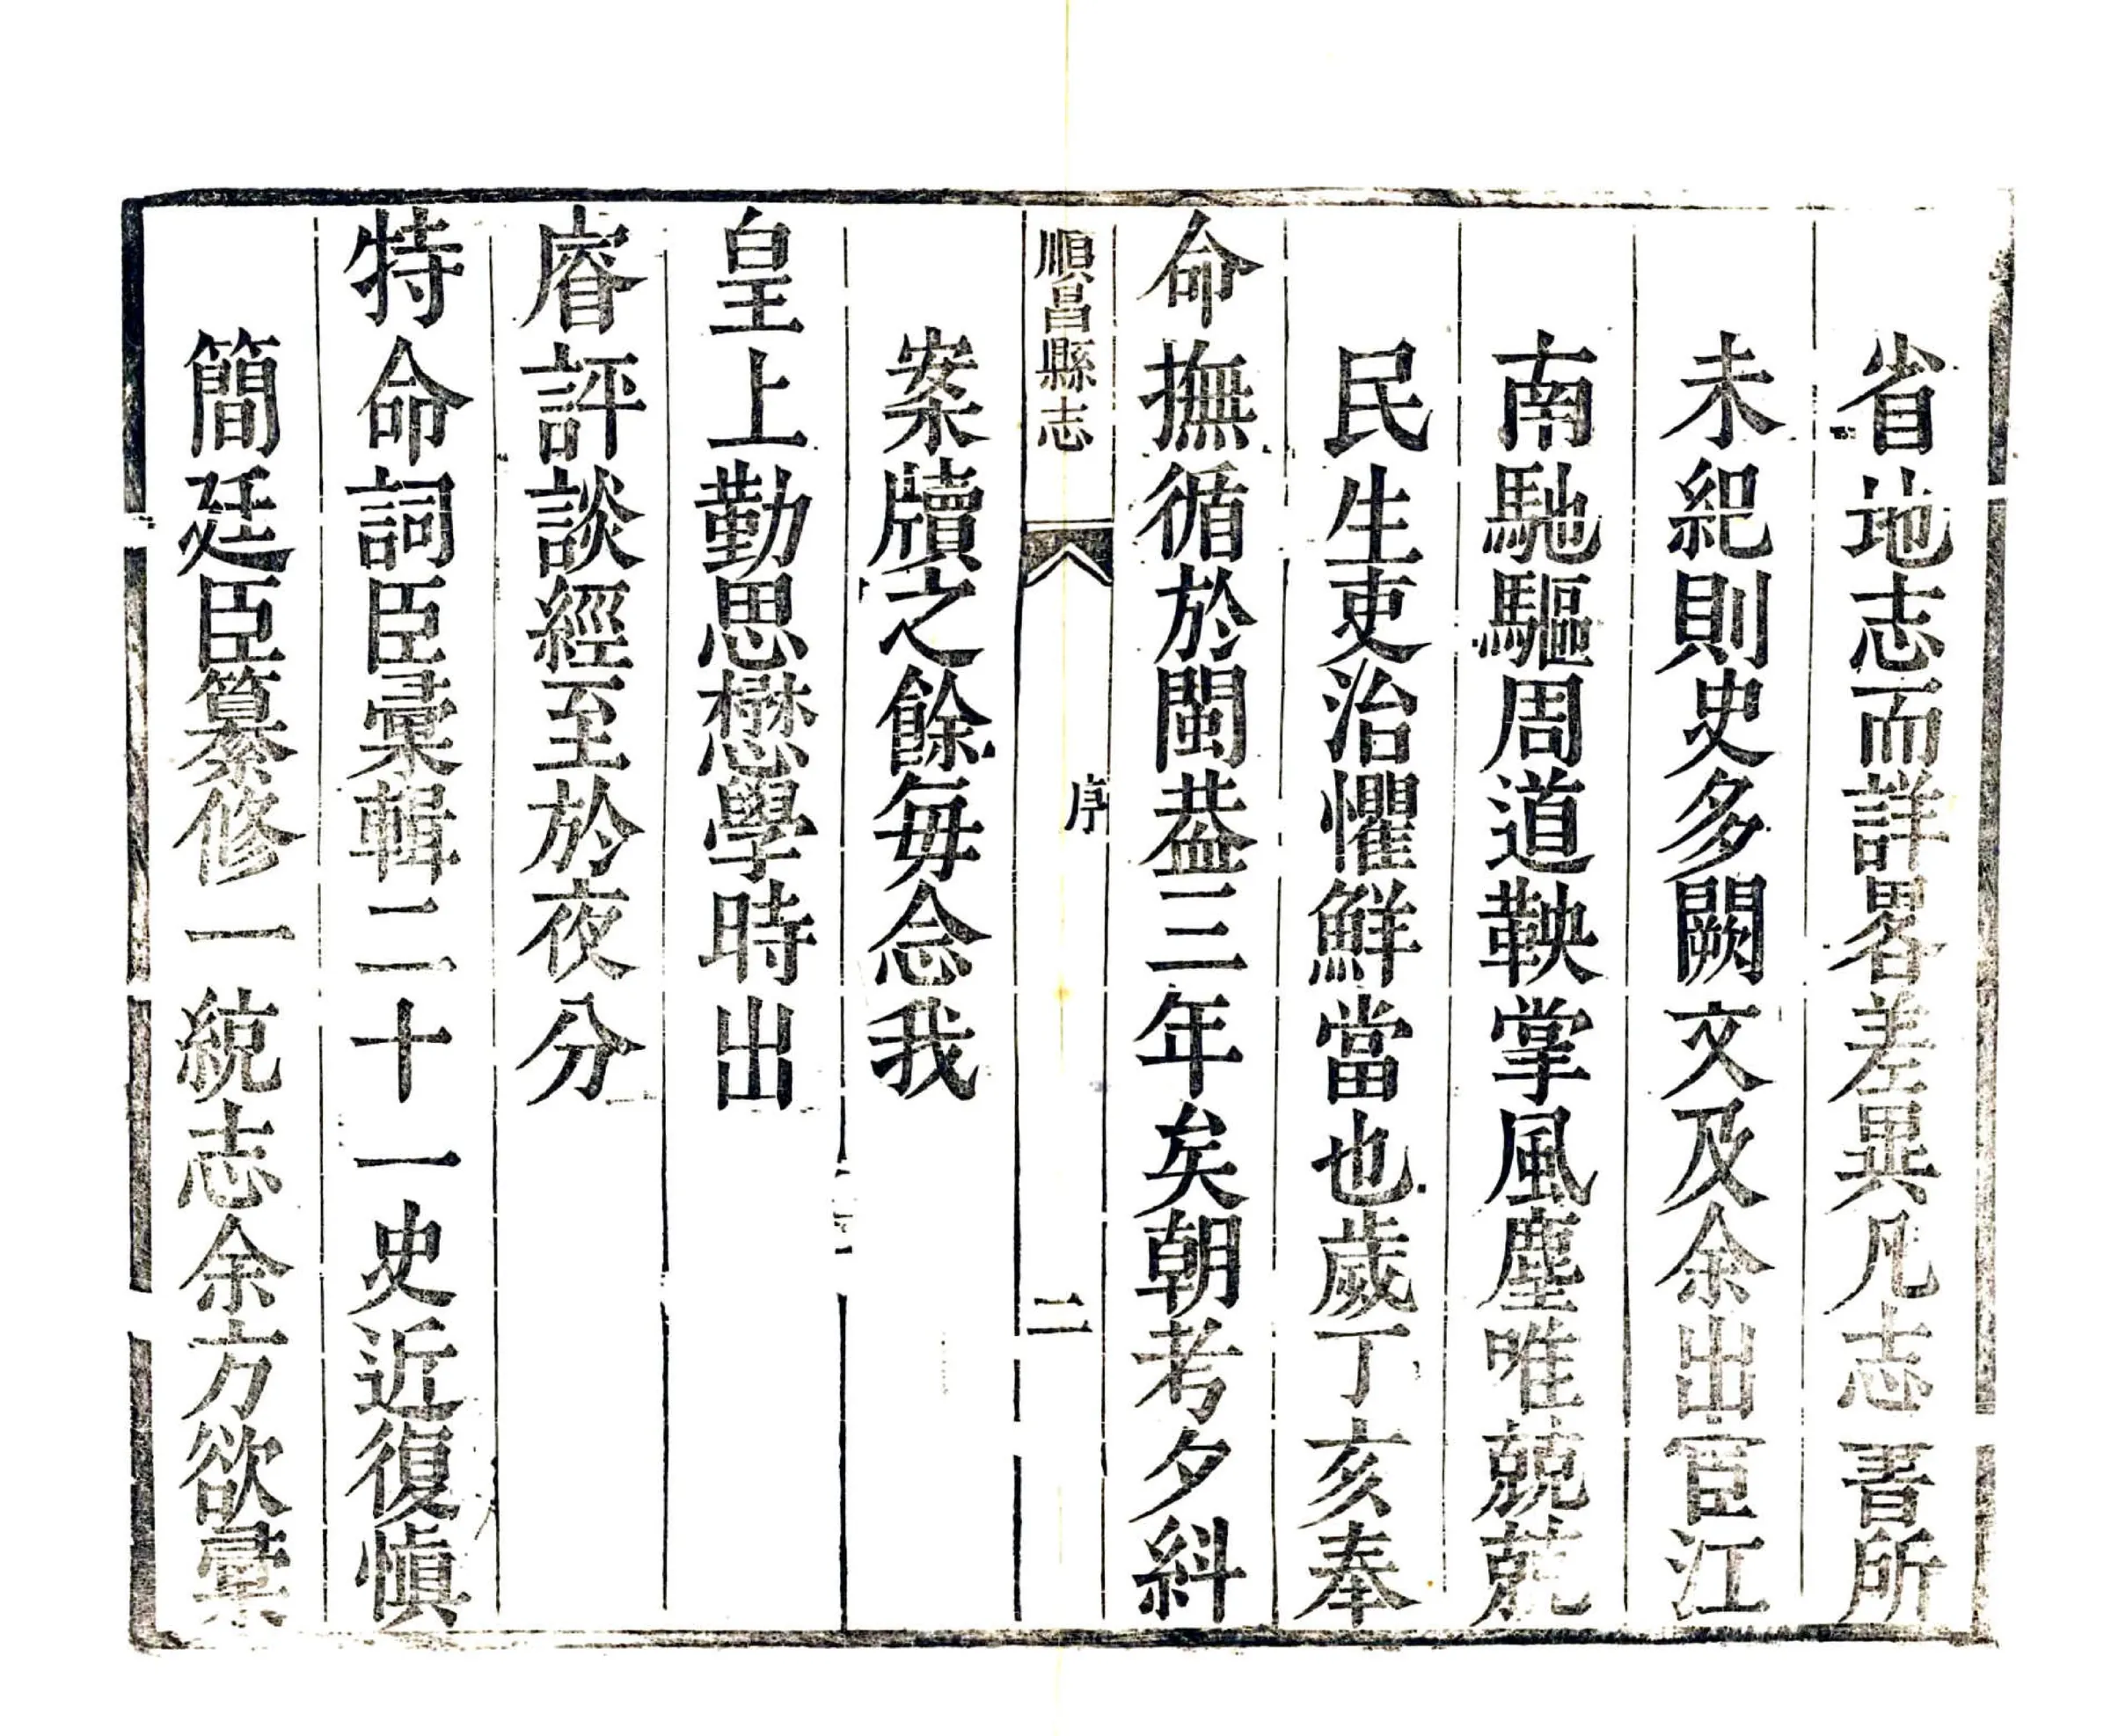 省地志而詳畧差異凡志書所
未紀則史多闕文及余出宦江
南馳驅周道鞅掌風塵唯兢兢
民生吏治懼鮮當也歲丁亥奉
命撫循於閩葢三年矣朝考夕糾
順昌縣志
序
二
案牘之餘每念我
皇上勤思懋學時出
睿評談經至於夜分
特命詞臣彙輯二十一史近復慎
簡廷臣纂修一統志余方欲彙